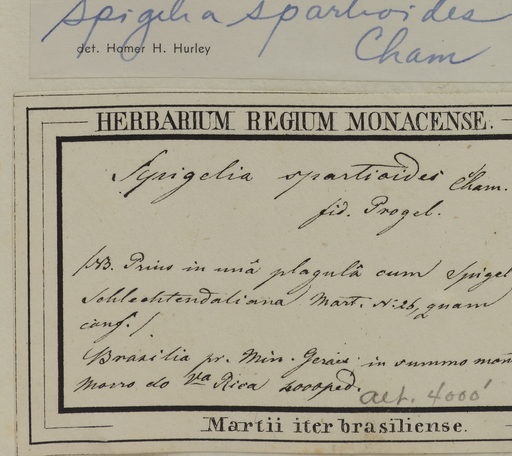 Spigelia spartioides
det. Homer H. Hurley
Cham
HERBARIUM REGIUM MONACENSE.
Spigelia spartioides Cham.
fid. Progel.
/NB. Prius in unâ plagulâ cum Spigel
Schlechtendaliana Mart. N: 26, quam
conf./
Brasilia pr. Min. Geraes in summo mon
Morro do Va Rica 4000ped.
alt. 4000'
Martii iter brasiliense.